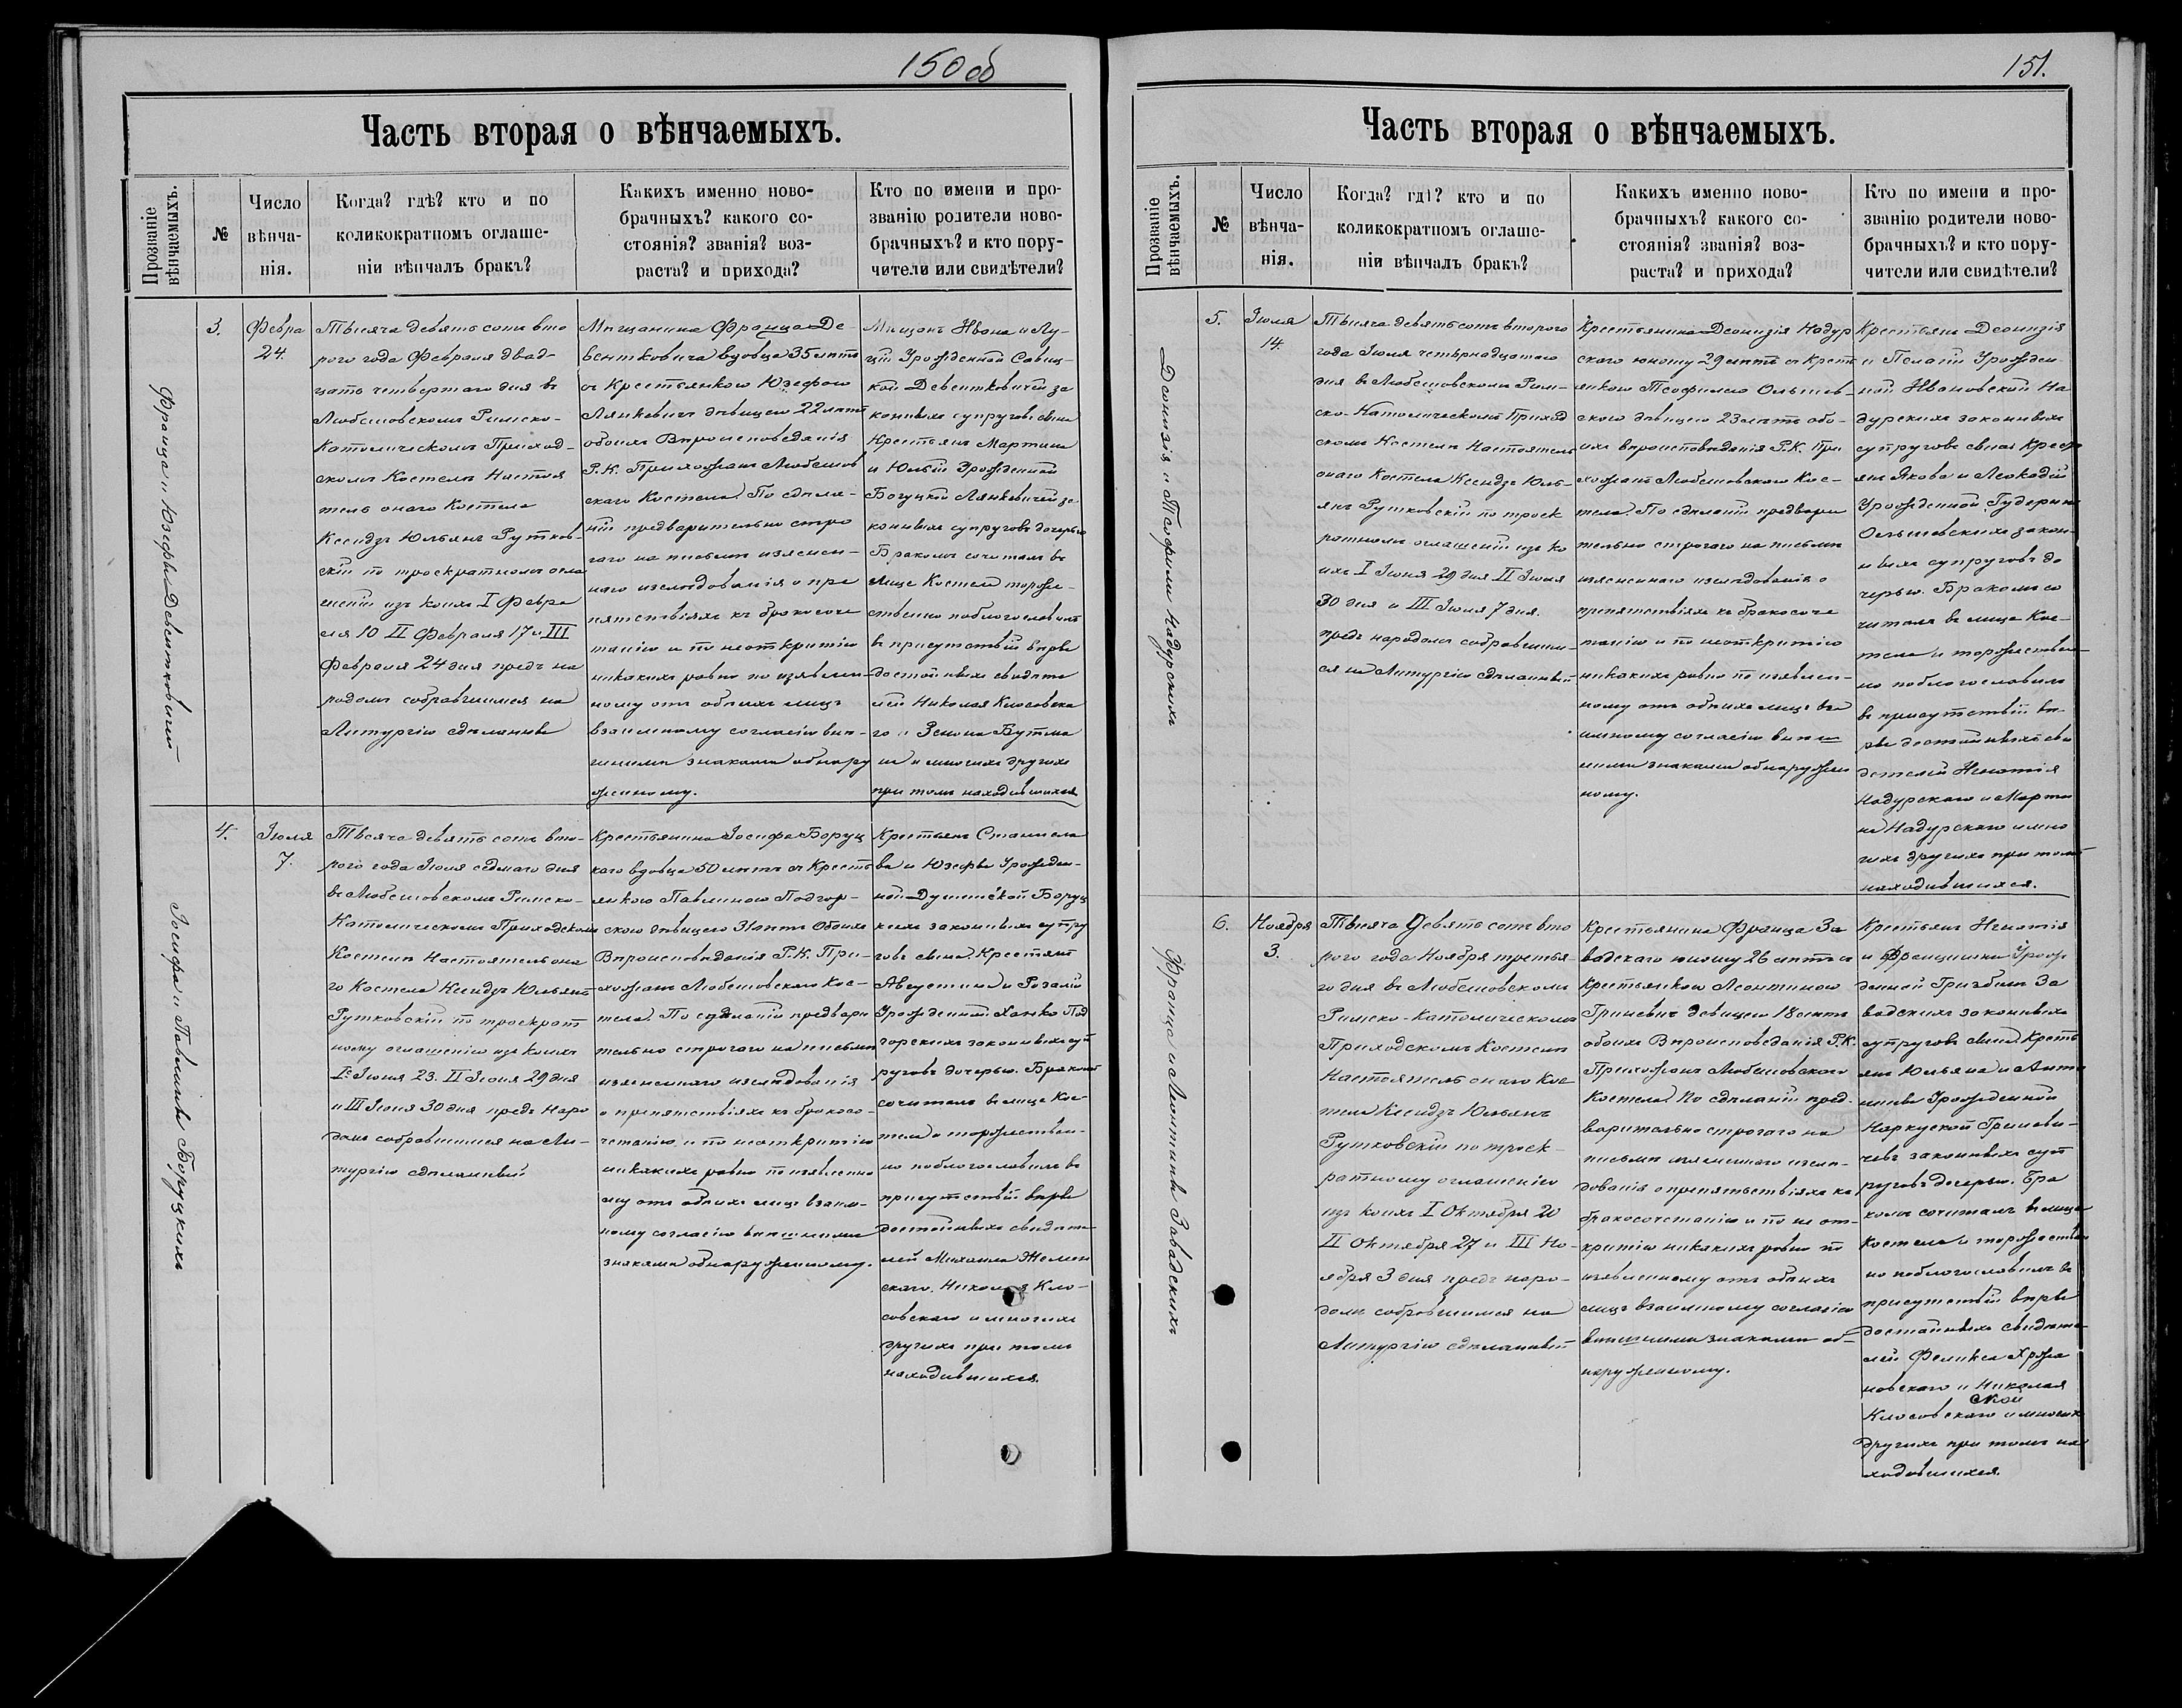 150 об
Часть вторая о вѣнчаемыхъ.
Прозваніе
вѣнчаемыхъ.
№
Число
вѣнча-
нія.
Когда? гдѣ? кто и по
коликократномъ оглаше-
ніи вѣнчалъ бракъ?
Какихъ именно ново-
брачныхъ? какого со-
стоянія? званія? воз-
раста? и прихода?
Кто по имени и про-
званію родители ново-
брачныхъ? и кто пору-
чители или свидѣтели?
Франца и Юзефы Девентковичи
3.
Февра
24.
Тысяча девятьсотъ вто
рого года Февраля двад-
цать четвертаго дня въ
Любешовскомъ Римско-
Католическомъ Приход-
скомъ Костелѣ Настоя
тель онаго Костела
Ксендзъ Юльянъ Рутков-
скій по троекратномъ огла
шеніи изъ коихъ I Февра
ля 10 II Февраля 17 и III
Февраля 24 дня предъ на
родомъ собравшимся на
Литургію сдѣланные
Мѣщанина Франца Де
вентковича вдовца 35 лѣтъ
съ Крестьянкою Юзефою
Лянкевичъ дѣвицею 22 лѣтъ
обоихъ Вѣроисповѣданія
Р.К. Прихожанъ Любешов
скаго Костела. По сдѣла-
ніи предварительно стро
гаго на письмѣ изъясен-
наго изслѣдованія о пре
пятствіяхъ къ бракосоче
танію и по неоткрытію
никакихъ равно по изъявлен-
ному отъ обоихъ лицъ
взаимному согласію внѣ-
шними знаками обнару
женному.
Мѣщанъ Ивана и Лу-
ціи Урожденной Савиц-
кой Девентковичей за
конныхъ супруговъ сына
Крестьянъ Мартина
и Юліи Урожденной
Богуцкой Лянкевичей за
конныхъ супруговъ дочерью
Бракомъ сочиталъ въ
лицѣ Костела торже-
ственно поблагословилъ
въ присутствіи вѣрѣ
достойныхъ свидѣте
лей Николая Клосовска
го и Зенона Бутма
на и многихъ другихъ
при томъ находившихся
Іосифа и Павлины Боруцкихъ
4.
Іюля
7.
Тысяча девятьсотъ вто-
рого года Іюля седмаго дня
въ Любешовскомъ Римско-
Католическомъ Приходскомъ
Костелѣ Настоятель она
го Костела Ксендзъ Юльянъ
Рутковскій по троекрат
ному оглашенію изъ коихъ
I Іюня 23. II Іюня 29 дня
и III Іюня 30 дня предъ наро
домъ собравшимся на Ли-
тургію сдѣланный
Крестьянина Іосифа Боруц
каго вдовца 50 лѣтъ съ Кресть
янкою Павлиною Подгор-
скою дѣвицею 31 лѣтъ Обоихъ
Вѣроисповѣданія Р.К. При-
хожанъ Любешовскаго Кос-
тела. По сдѣланіи предвари
тельно строгаго на письмѣ
изъясненаго изслѣдованія
о препятствіяхъ къ бракосо-
четанію и по неоткрытію
никакихъ равно по изъявленно
му отъ обоихъ лицъ взаим-
ному согласію внѣшними
знаками обнаруженному.
Крестьянъ Станисла
ва и Юзефы Урожден-
ной Душинской Боруц
кихъ законныхъ супру
говъ сына. Крестьянъ
Августина и Розаліи
Урожденной Ханко Под
горскихъ законныхъ суп
руговъ дочерью. Бракомъ
сочиталъ въ лицѣ Кос-
тела и торжествен-
но поблагословилъ въ
присутствіи вѣрѣ
достойныхъ свидѣте
лей Михаила Желен
скаго, Николая Кло-
совскаго и многихъ
другихъ при томъ
находившихся.
151.
Часть вторая о вѣнчаемыхъ.
Прозваніе
вѣнчаемыхъ.
№
Число
вѣнча-
нія.
Когда? гдѣ? кто и по
коликократномъ оглаше-
ніи вѣнчалъ бракъ?
Какихъ именно ново-
брачныхъ? какого со-
стоянія? званія? воз-
раста? и прихода?
Кто по имени и про-
званію родители ново-
брачныхъ? и кто пору-
чители или свидѣтели?
Деонизія и Теофили Надурскихъ
5.
Іюля
14.
Тысяча девятьсотъ второго
года Іюля четырнадцатаго
дня въ Любешовскомъ Рим-
ско-Католическомъ Приход
скомъ Костелѣ Настоятель
онаго Костела Ксендзъ Юль-
янъ Рутковскій по троек
ратномъ оглашеніи изъ ко
ихъ I Іюня 29 дня II Іюня
30 дня и III Іюля 7 дня.
предъ народомъ собравшим-
ся на Литургію сдѣланный
Крестьянина Деонизія Надур
скаго юношу 29 лѣтъ съ Кресть
янкою Теофилею Ольшев-
скою дѣвицею 23 лѣтъ обо-
ихъ вѣроисповѣданія Р.К. При
хожанъ Любешовского Кос-
тела. По сдѣланіи предвари
тельно строгаго на письмѣ
изъясненнаго изслѣдованія о
препятствіяхъ къ бракосоче
танію и по неоткрытію
никакихъ равно по изъявлен-
ному отъ обоихъ лицъ вза
имному согласію внѣш
ними знаками обнаружен
ному.
Крестьянъ Деонизія
и Пелагіи Урожден
ной Ивановской На
дурскихъ законныхъ
супруговъ сына Кресть
янъ Якова и Леокадіи
Урожденной Гудерин
Ольшевскихъ закон-
ныхъ супруговъ до
черью. Бракомъ со
читалъ въ лицѣ Кос-
тела и торжествен-
но поблагословилъ
въ присутствіи вѣ-
рѣ достойныхъ сви
детелей Игнатія
Надурскаго и Марти
на Надурскаго и мно
гихъ другихъ при томъ
находившихся.
Франца и Леонтины Завадскихъ
6.
Ноября
3.
Тысяча Девятьсотъ вто
рого года Ноября третья-
го дня въ Любешовскомъ
Римско-Католическомъ
Приходскомъ Костелѣ
Настоятель онаго Кос
тела Ксендзъ Юльянъ
Рутковскій по троек-
ратному оглашенію
изъ коихъ I Октября 20
II Октября 27 и III Но-
ября 3 дня предъ наро-
домъ собравшимся на
Литургію сдѣланный
Крестьянина Франца За
вадскаго юношу 26 лѣтъ съ
Крестьянкою Леонтиною
Гриневичъ девицею 18 лѣтъ
обоихъ Вѣроисповеданія Р.К.
Прихожанъ Любешовскаго
Костела. По сдѣланіи пред-
варительно строгаго на
письмѣ изъясненнаго изслѣ-
дованія о препятствіяхъ къ
бракосочетанію и по неот-
крытію никакихъ равно по
изъявленному отъ обоихъ
лицъ взаимному согласію
внѣшними знаками об-
наруженному.
Крестьянъ Игнатія
и Францишки Урож
денной Гризбилъ За
вадскихъ законныхъ
супруговъ сына. Кресть
янъ Юльяна и Анто
нины Урожденной
Наркуской Гриневи-
чевъ законныхъ суп
руговъ дочерью. Бра
комъ сочиталъ въ лицѣ
Костела и торжествен
но поблагословилъ въ
присутствіи вѣрѣ
достойныхъ свидѣте-
лей Феликса Хржа
новскаго и Николая
Клосовскаго и многихъ
другихъ при томъ на
ходившихся.